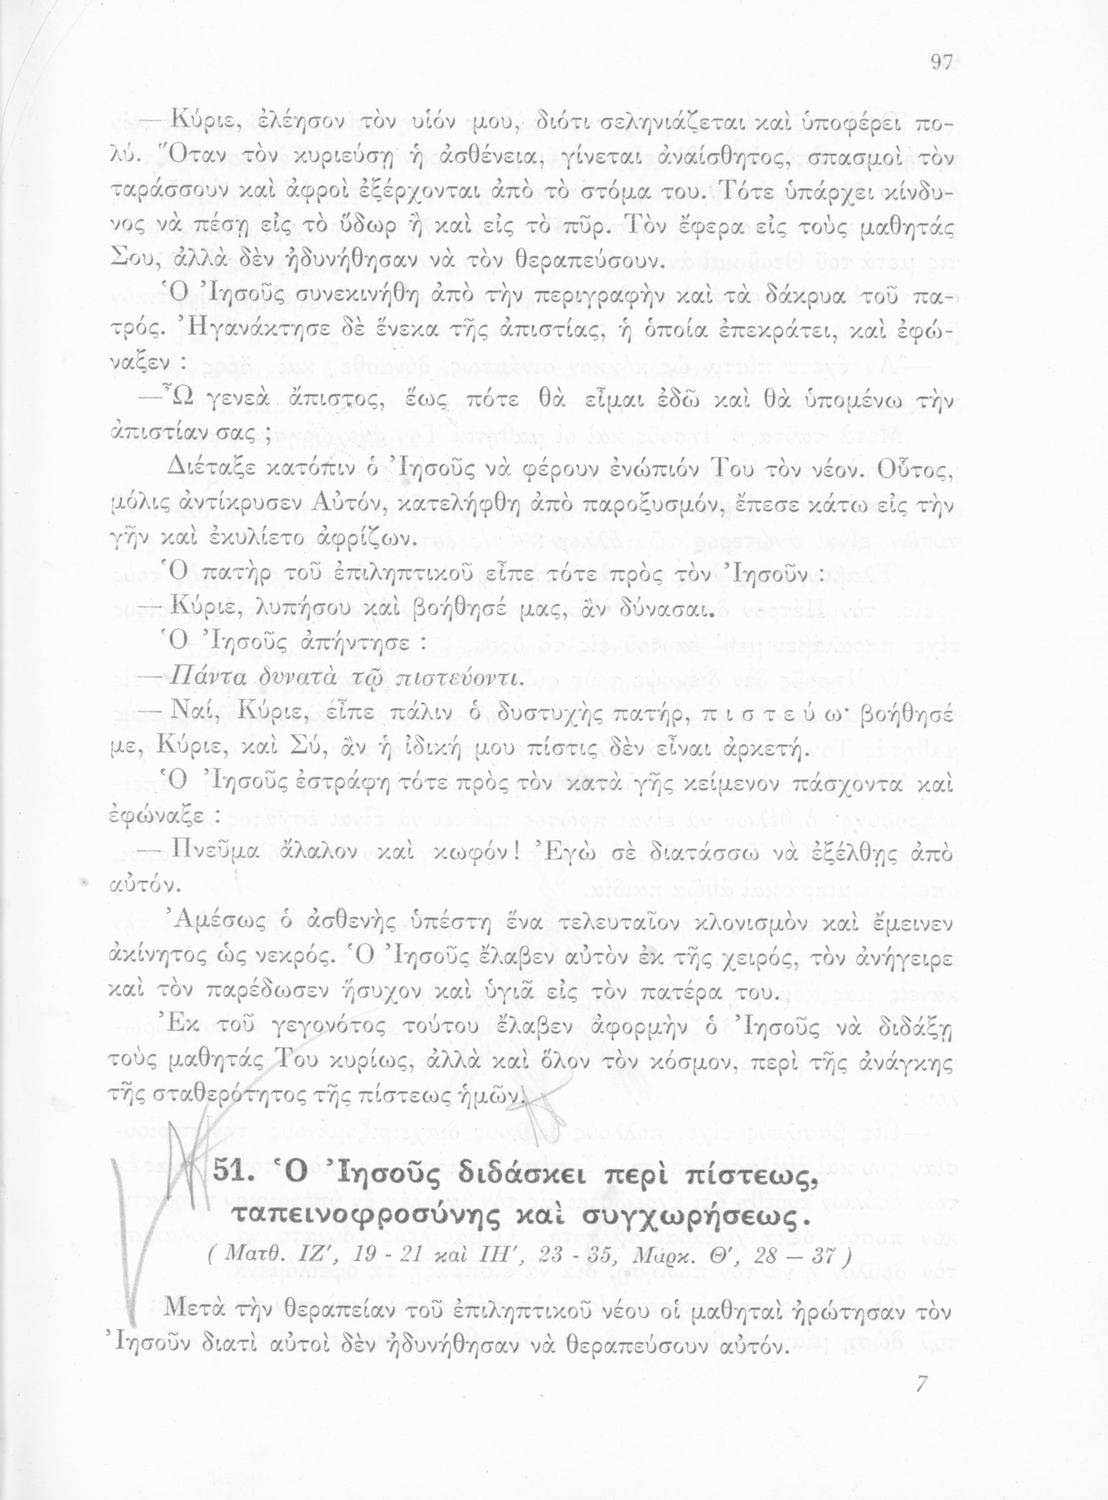 97
— Κύριε, ἐλέησον τὸν υἱόν μου, διότι σεληνιάζεται καὶ ὑποφέρει πο-
λύ. Ὅταν τὸν κυριεύσῃ ἡ ἀσθένεια, γίνεται ἀναίσθητος, σπασμοὶ τὸν
ταράσσουν καὶ ἀφροὶ ἐξέρχονται ἀπὸ τὸ στόμα του. Τότε ὑπάρχει κίνδυ-
νος νὰ πέσῃ εἰς τὸ ὕδωρ ἢ καὶ εἰς τὸ πῦρ. Τὸν ἔφερα εἰς τοὺς μαθητάς
Σου, ἀλλὰ δὲν ἠδυνήθησαν νὰ τὸν θεραπεύσουν.
Ὁ Ἰησοῦς συνεκινήθη ἀπὸ τὴν περιγραφὴν καὶ τὰ δάκρυα τοῦ πα-
τρός. Ἠγανάκτησε δὲ ἕνεκα τῆς ἀπιστίας, ἡ ὁποία ἐπεκράτει, καὶ ἐφώ-
ναξεν :
—Ὦ γενεὰ ἄπιστος, ἕως πότε θὰ εἶμαι ἐδῶ καὶ θὰ ὑπομένω τὴν
ἀπιστίαν σας ;
Διέταξε κατόπιν ὁ Ἰησοῦς νὰ φέρουν ἐνώπιόν Του τὸν νέον. Οὗτος,
μόλις ἀντίκρυσεν Αὐτόν, κατελήφθη ἀπὸ παροξυσμόν, ἔπεσε κάτω εἰς τὴν
γῆν καὶ ἐκυλίετο ἀφρίζων.
Ὁ πατὴρ τοῦ ἐπιληπτικοῦ εἶπε τότε πρὸς τὸν Ἰησοῦν :
— Κύριε, λυπήσου καὶ βοήθησέ μας, ἂν δύνασαι.
Ὁ Ἰησοῦς ἀπήντησε :
—Πάντα δυνατὰ τῷ πιστεύοντι.
— Ναί, Κύριε, εἶπε πάλιν ὁ δυστυχὴς πατήρ, π ι σ τ ε ύ ω· βοήθησέ
με, Κύριε, καὶ Σύ, ἂν ἡ ἰδική μου πίστις δὲν εἶναι ἀρκετή.
Ὁ Ἰησοῦς ἐστράφη τότε πρὸς τὸν κατὰ γῆς κείμενον πάσχοντα καὶ
ἐφώναξε :
— Πνεῦμα ἄλαλον καὶ κωφόν! Ἐγὼ σὲ διατάσσω νὰ ἐξέλθῃς ἀπὸ
αὐτόν.
Ἀμέσως ὁ ἀσθενὴς ὑπέστη ἕνα τελευταῖον κλονισμὸν καὶ ἔμεινεν
ἀκίνητος ὡς νεκρός. Ὁ Ἰησοῦς ἔλαβεν αὐτὸν ἐκ τῆς χειρός, τὸν ἀνήγειρε
καὶ τὸν παρέδωσεν ἥσυχον καὶ ὑγιᾶ εἰς τὸν πατέρα του.
Ἐκ τοῦ γεγονότος τούτου ἔλαβεν ἀφορμὴν ὁ Ἰησοῦς νὰ διδάξῃ
τοὺς μαθητάς Του κυρίως, ἀλλὰ καὶ ὅλον τὸν κόσμον, περὶ τῆς ἀνάγκης
τῆς σταθερότητος τῆς πίστεως ἡμῶν.
51. Ὁ Ἰησοῦς διδάσκει περὶ πίστεως,
ταπεινοφροσύνης καὶ συγχωρήσεως.
( Ματθ. ΙΖ', 19 - 21 καὶ ΙΗ', 23 - 35, Μάρκ. Θ', 28 — 37 )
Μετὰ τὴν θεραπείαν τοῦ ἐπιληπτικοῦ νέου οἱ μαθηταὶ ἠρώτησαν τὸν
Ἰησοῦν διατὶ αὐτοὶ δὲν ἠδυνήθησαν νὰ θεραπεύσουν αὐτόν.
7